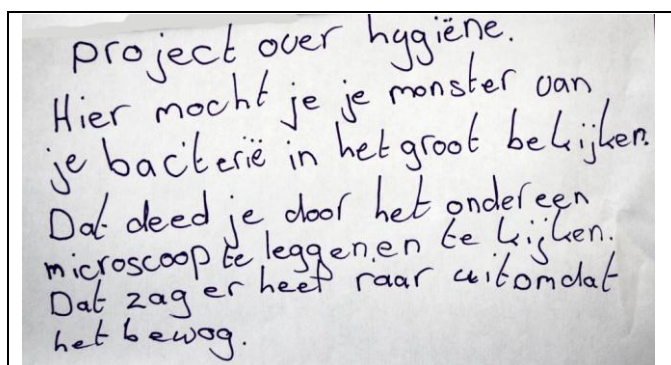 project over hygiëne.
Hier mocht je je monster van
je bacterië in het groot bekijken.
Dat deed je door het onder een
microscoop te leggen.en te kijken.
Dat zag er heel raar uit omdat
het bewog.